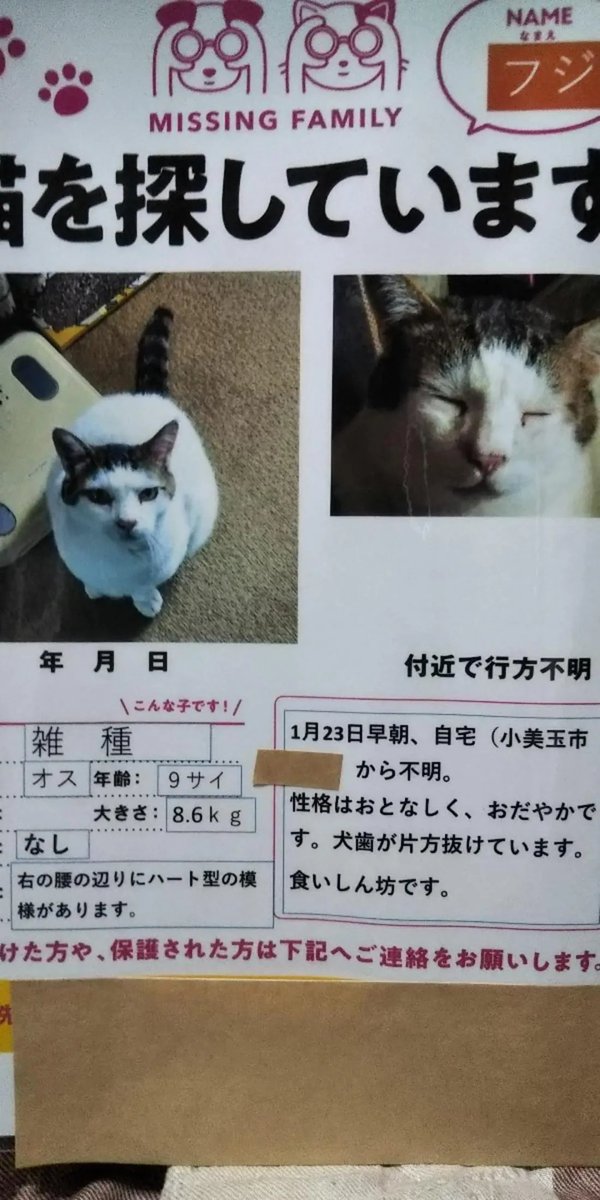 NAME
なまえ
フジ
MISSING FAMILY
猫を探しています
年 月 日
付近で行方不明
\ こんな子です! /
雑 種
オス 年齢： 9サイ
大きさ： 8.6kg
なし
右の腰の辺りにハート型の模
様があります。
1月23日早朝、自宅（小美玉市
から不明。
性格はおとなしく、おだやかで
す。犬歯が片方抜けています。
食いしん坊です。
けた方や、保護された方は下記へご連絡をお願いします。